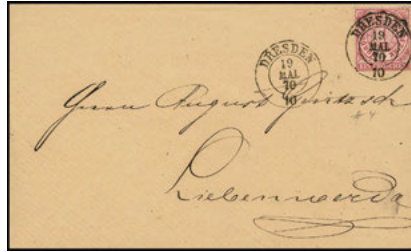 DRESDEN
19
MAI
70
10
DRESDEN
19
MAI
70
10
Herrn August
Liebenwerda